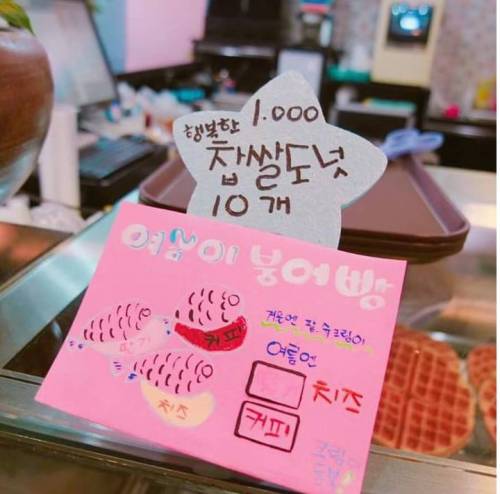 행복한 1.000
찹쌀도넛
10개
여름이 붕어빵
딸기
커피
치즈
겨울엔 팥, 슈크림이
여름엔
딸기 치즈
커피